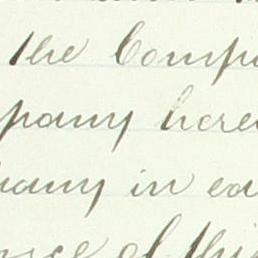 the Comp
pany here
pany in ea
of thi